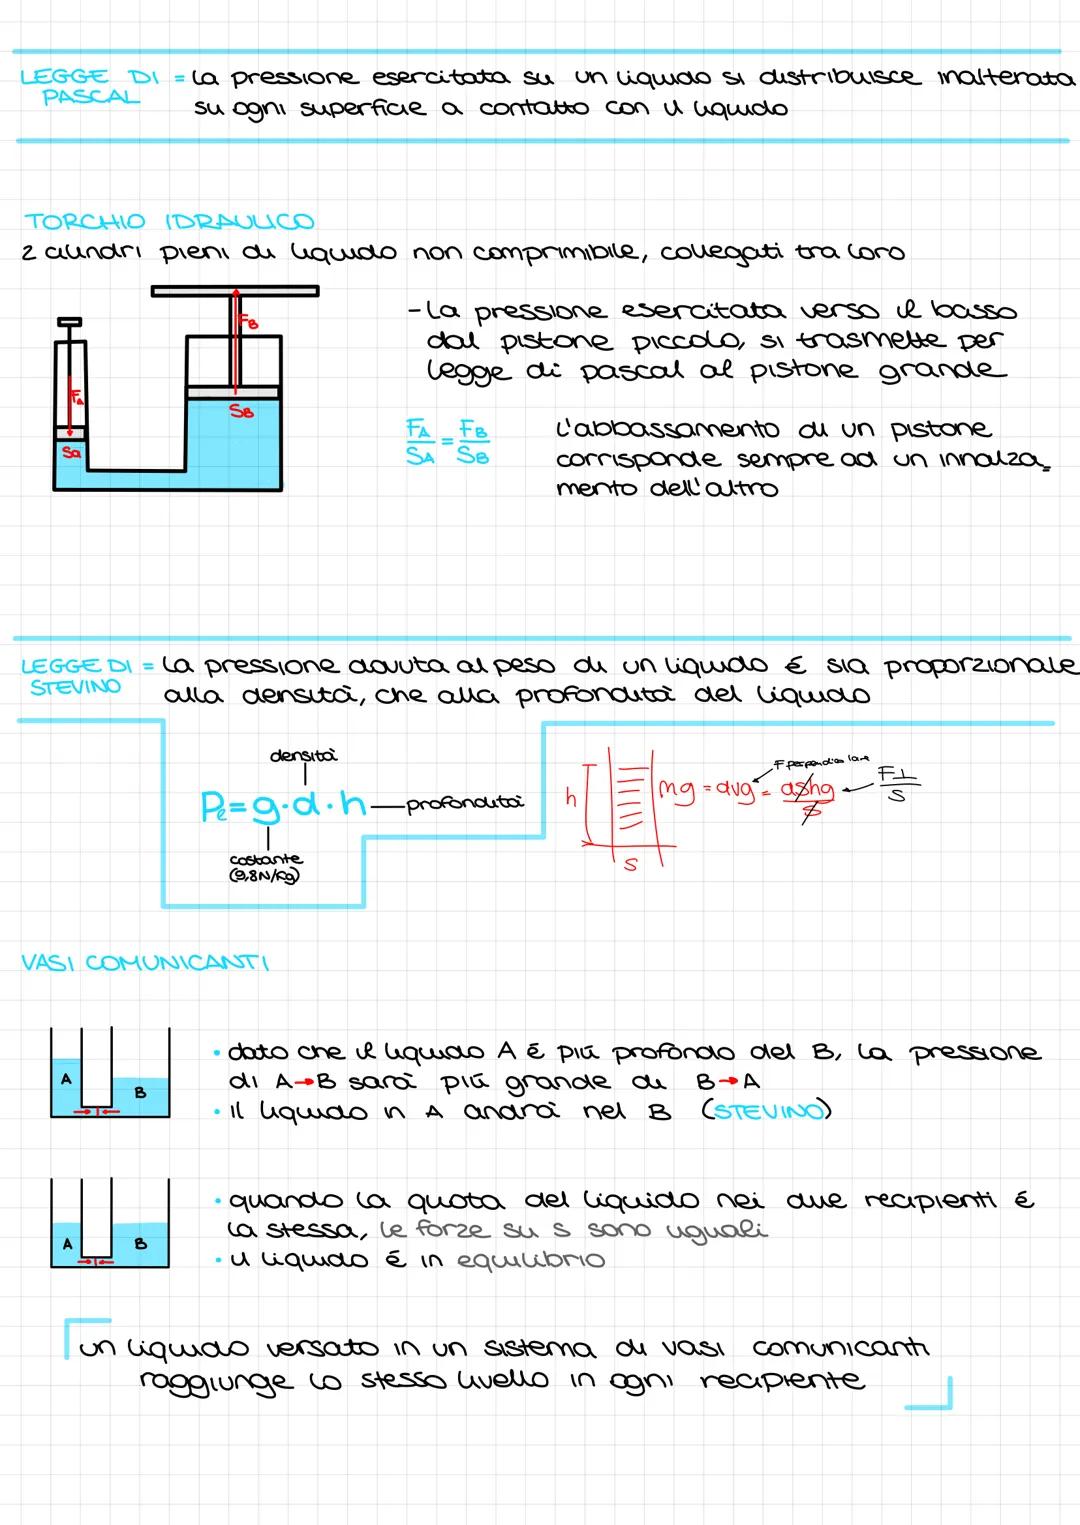 LEGGE DI PASCAL = La pressione esercitata su un liquido si distribuisce inalterata
su ogni superficie a contatto con il liquido
TORCHIO IDRAULICO
2 cilindri pieni di liquido non comprimibile, collegati tra loro
FB
FA
SB
Sa
-La pressione esercitata verso il basso
dal pistone piccolo, si trasmette per
legge di pascal al pistone grande
FA/SA = FB/SB
L'abbassamento di un pistone
corrisponde sempre ad un innalza-
mento dell'altro
LEGGE DI STEVINO = La pressione dovuta al peso di un liquido é sia proporzionale
alla densità, che alla profondità del liquido
densità
Pe=g·d·h
profondità
costante
(9,8N/Kg)
h
S
F perpendicolare
mg = dvg = dShg/S
F⊥/S
VASI COMUNICANTI
A
B
• dato che il liquido A é più profondo del B, la pressione
di A→B sarà più grande di B→A
• il liquido in A andrà nel B (STEVINO)
A
B
• quando la quota del liquido nei due recipienti é
la stessa, le forze su s sono uguali
• il liquido é in equilibrio
un liquido versato in un sistema di vasi comunicanti
raggiunge lo stesso livello in ogni recipiente